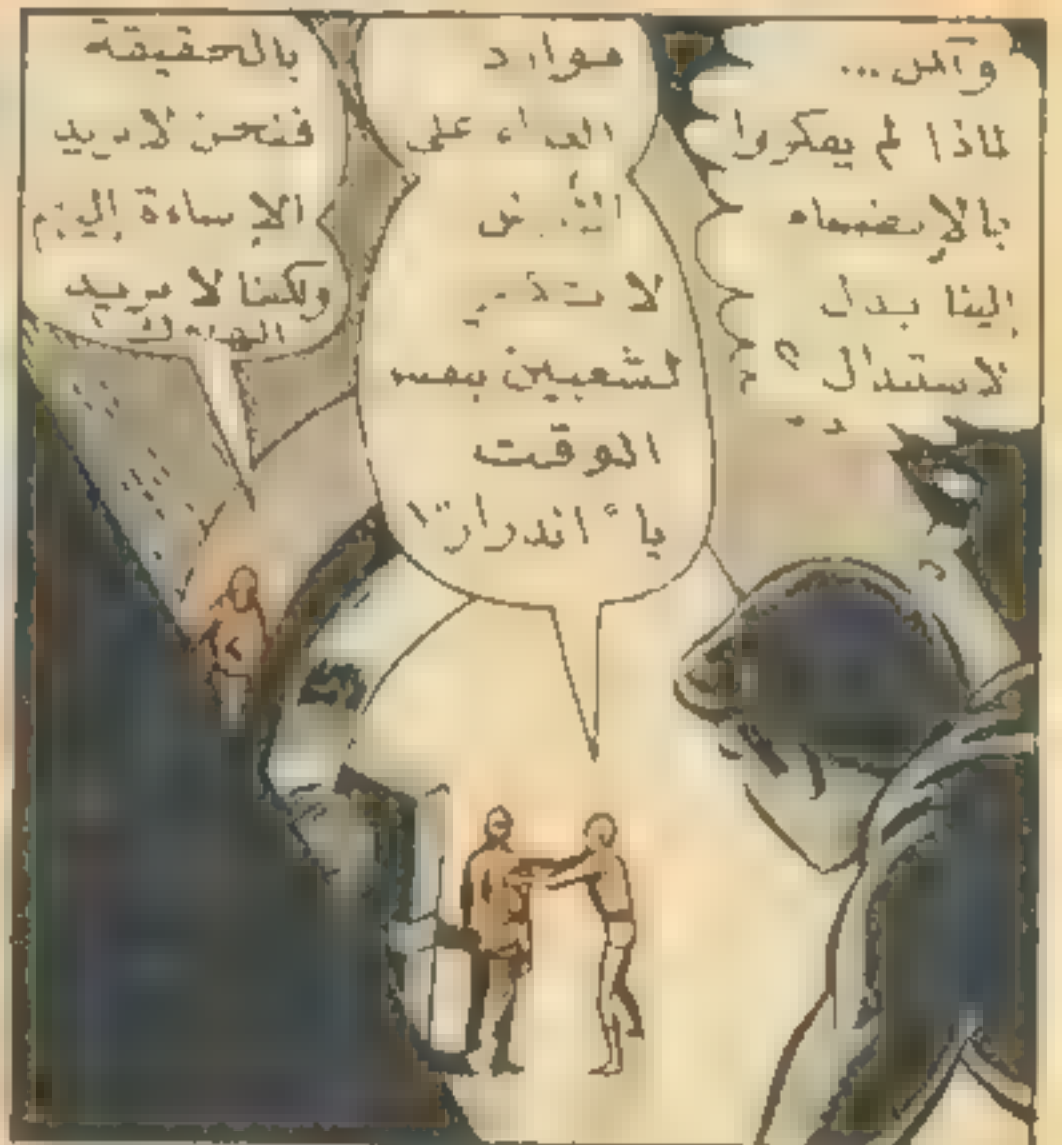 ولكن...
لماذا لم يفكروا
بالإنضمام
إلينا بدل
موارد
على
الأرض
لا
لشعبين بنفس
الوقت
يا
بالحقيقة
فنحن لا نريد
الإساءة إليهم
ولكننا لا نريد